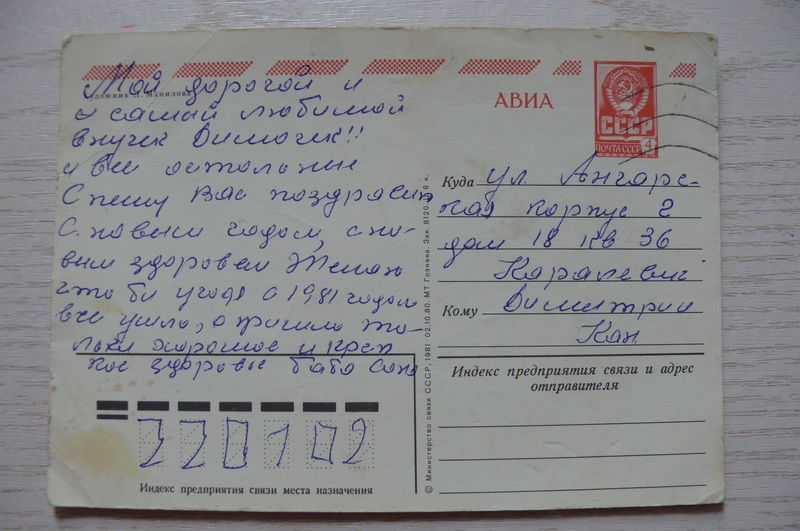 Мой дорогой и
художник Л. Манилова
самай любимой
внучек Димочек!!
и все остольные
Спешу Вас поздравит
С. новым годом, с но-
вым здоровем Желаю
што би уходя с 1981 годом
все ушло, а пришло то-
лько хорошое и креп
кое здоровье баба Соня
АВИА
СССР
ПОЧТА СССР 4
Куда ул. Ангарс-
кая корпус 2
дом 18 кв 36
Каралевиг
Кому Димитрии
Кан
Индекс предприятия связи и адрес
отправителя
220102
Индекс предприятия связи места назначения
© Министерство связи СССР, 1981 02.10.80. МТ Гознака. Зак. 8120. 6 к.